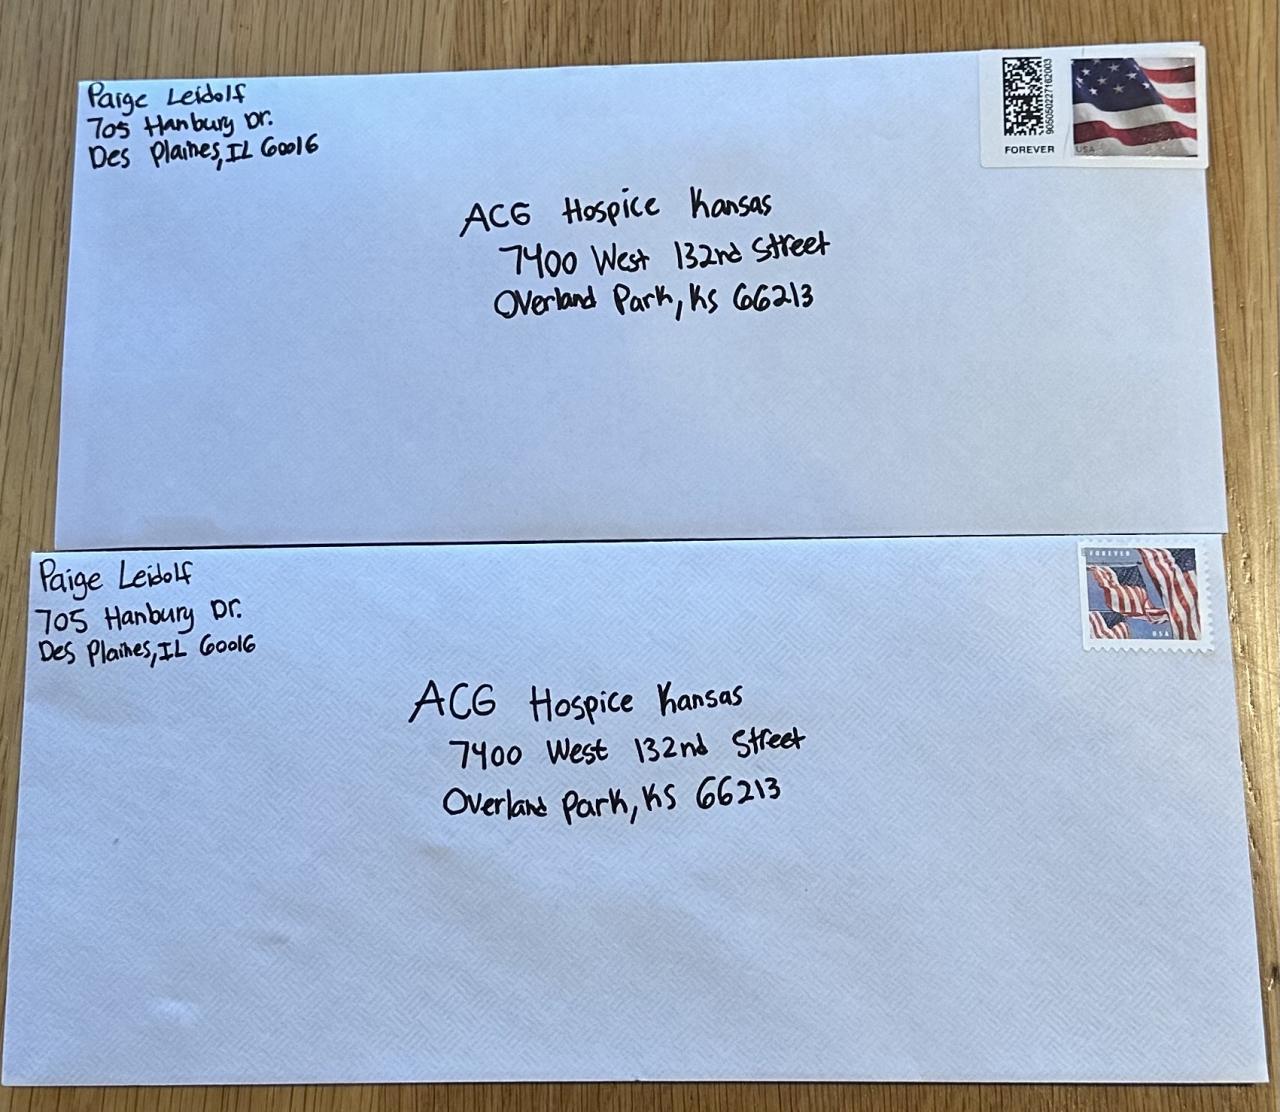 Paige Leidolf
705 Hanbury Dr.
Des Plaines, IL 60016
905050227162003
FOREVER
USA
ACG Hospice Kansas
7400 West 132nd Street
Overland Park, KS 66213
Paige Leidolf
705 Hanbury Dr.
Des Plaines, IL 60016
FOREVER
USA
ACG Hospice Kansas
7400 West 132nd Street
Overland Park, KS 66213